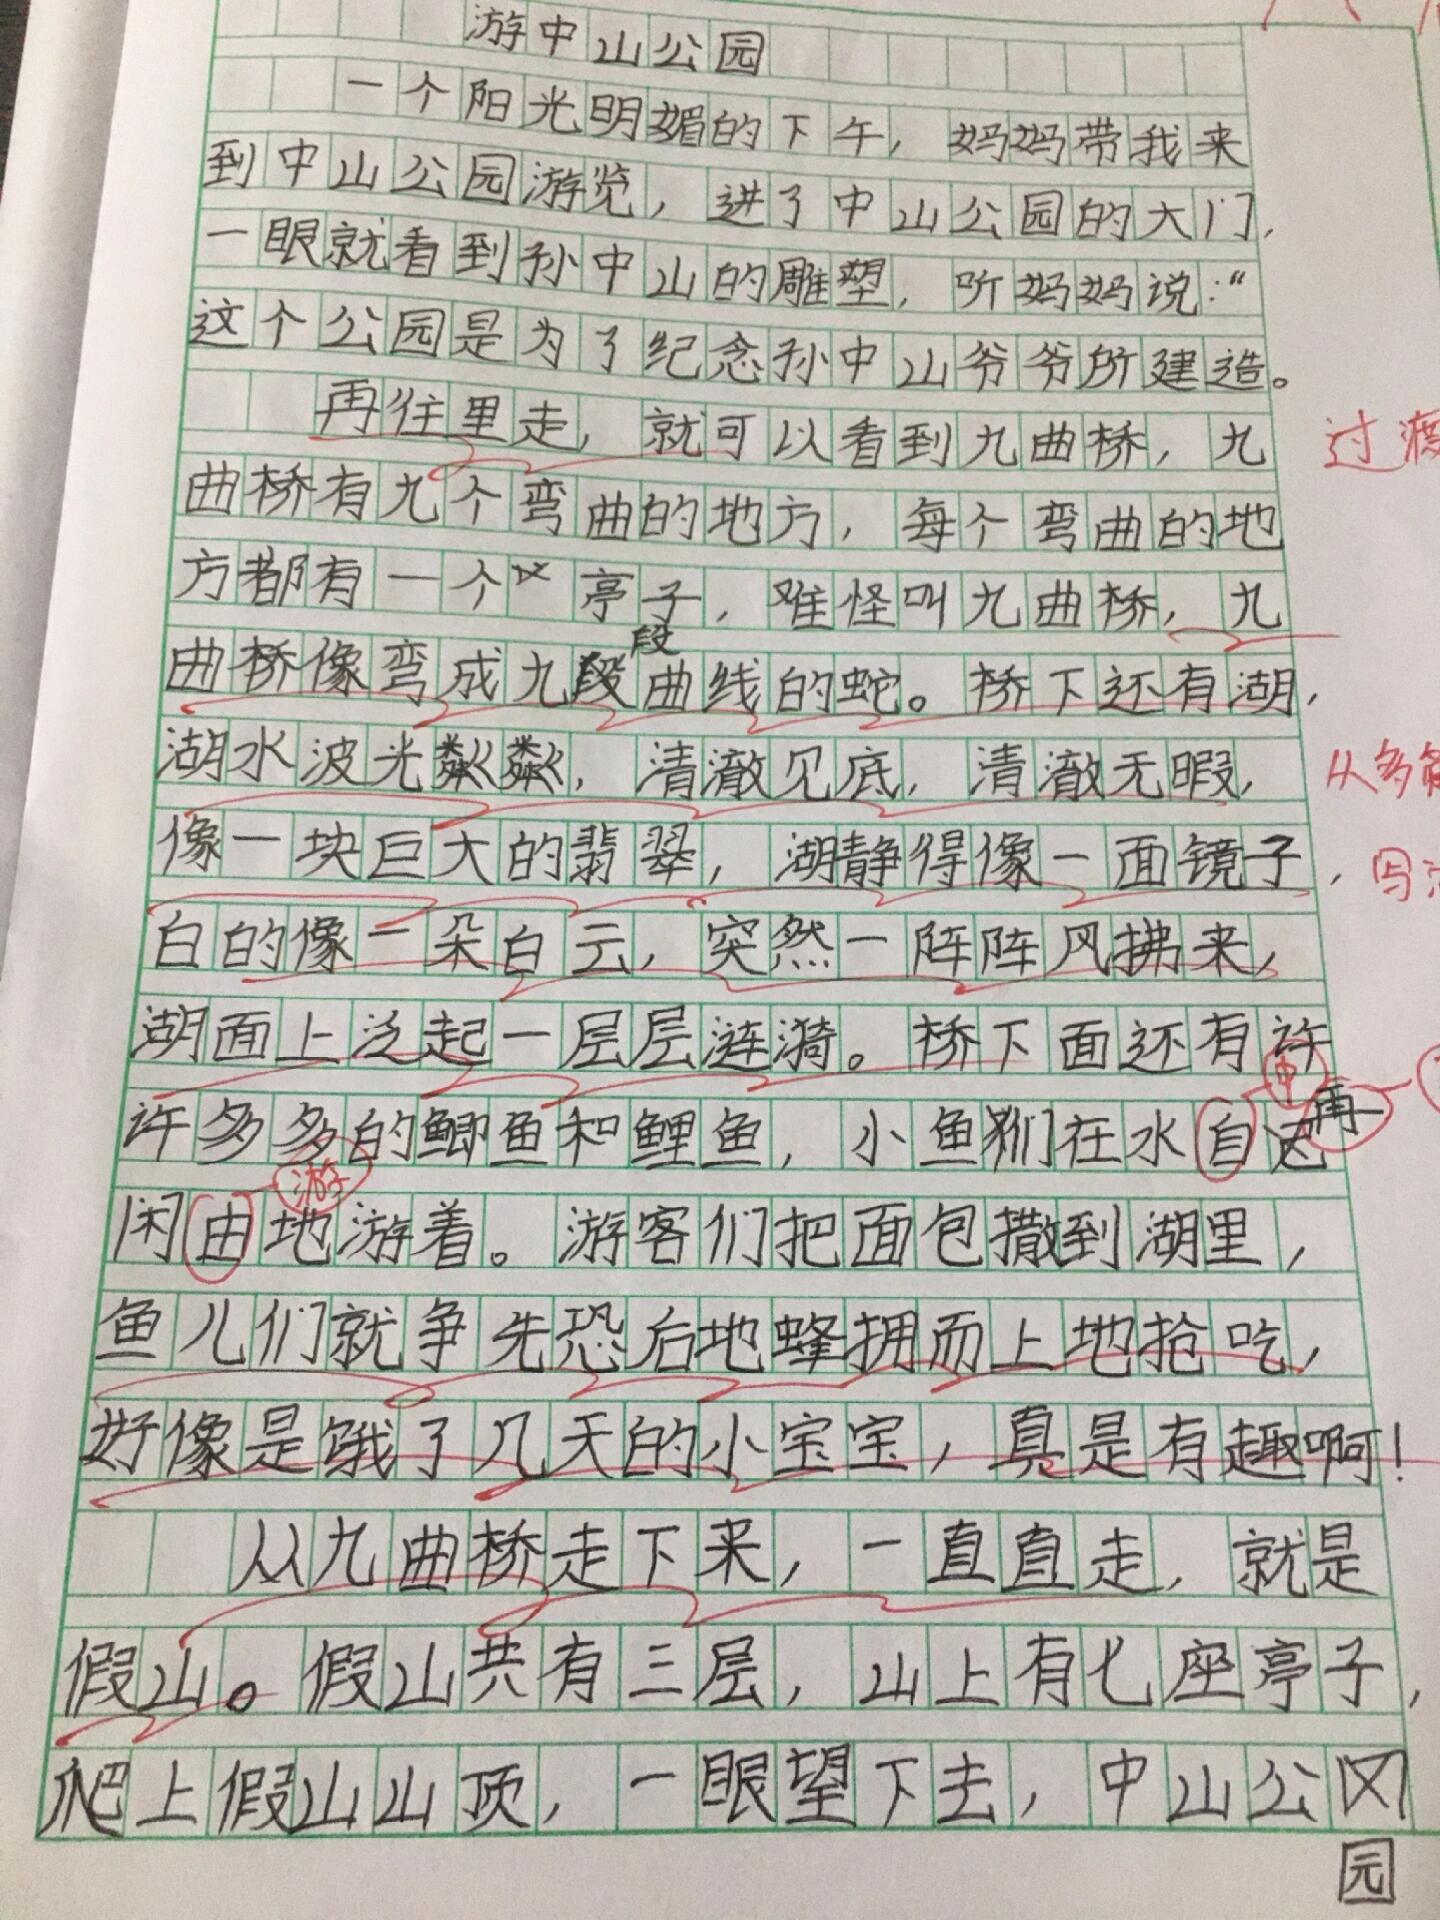 游中山公园
一个阳光明媚的下午，妈妈带我来
到中山公园游览，进了中山公园的大门，
一眼就看到孙中山的雕塑，听妈妈说：“
这个公园是为了纪念孙中山爷爷所建造。
再往里走，就可以看到九曲桥，九
过渡
曲桥有九个弯曲的地方，每个弯曲的地
方都有一个亭子，难怪叫九曲桥，九
段
曲桥像弯成九段曲线的蛇。桥下还有湖，
湖水波光粼粼，清澈见底，清澈无暇，
从多
像一块巨大的翡翠，湖静得像一面镜子，
写
白的像一朵白云，突然一阵阵风拂来，
湖面上泛起一层层涟漪。桥下面还有许
中
许多多的鲫鱼和鲤鱼，小鱼们在水自
再
游
闲由地游着。游客们把面包撒到湖里，
鱼儿们就争先恐后地蜂拥而上地抢吃，
好像是饿了几天的小宝宝，真是有趣啊！
从九曲桥走下来，一直直走，就是
假山。假山共有三层，山上有七座亭子，
爬上假山山顶，一眼望下去，中山公
园